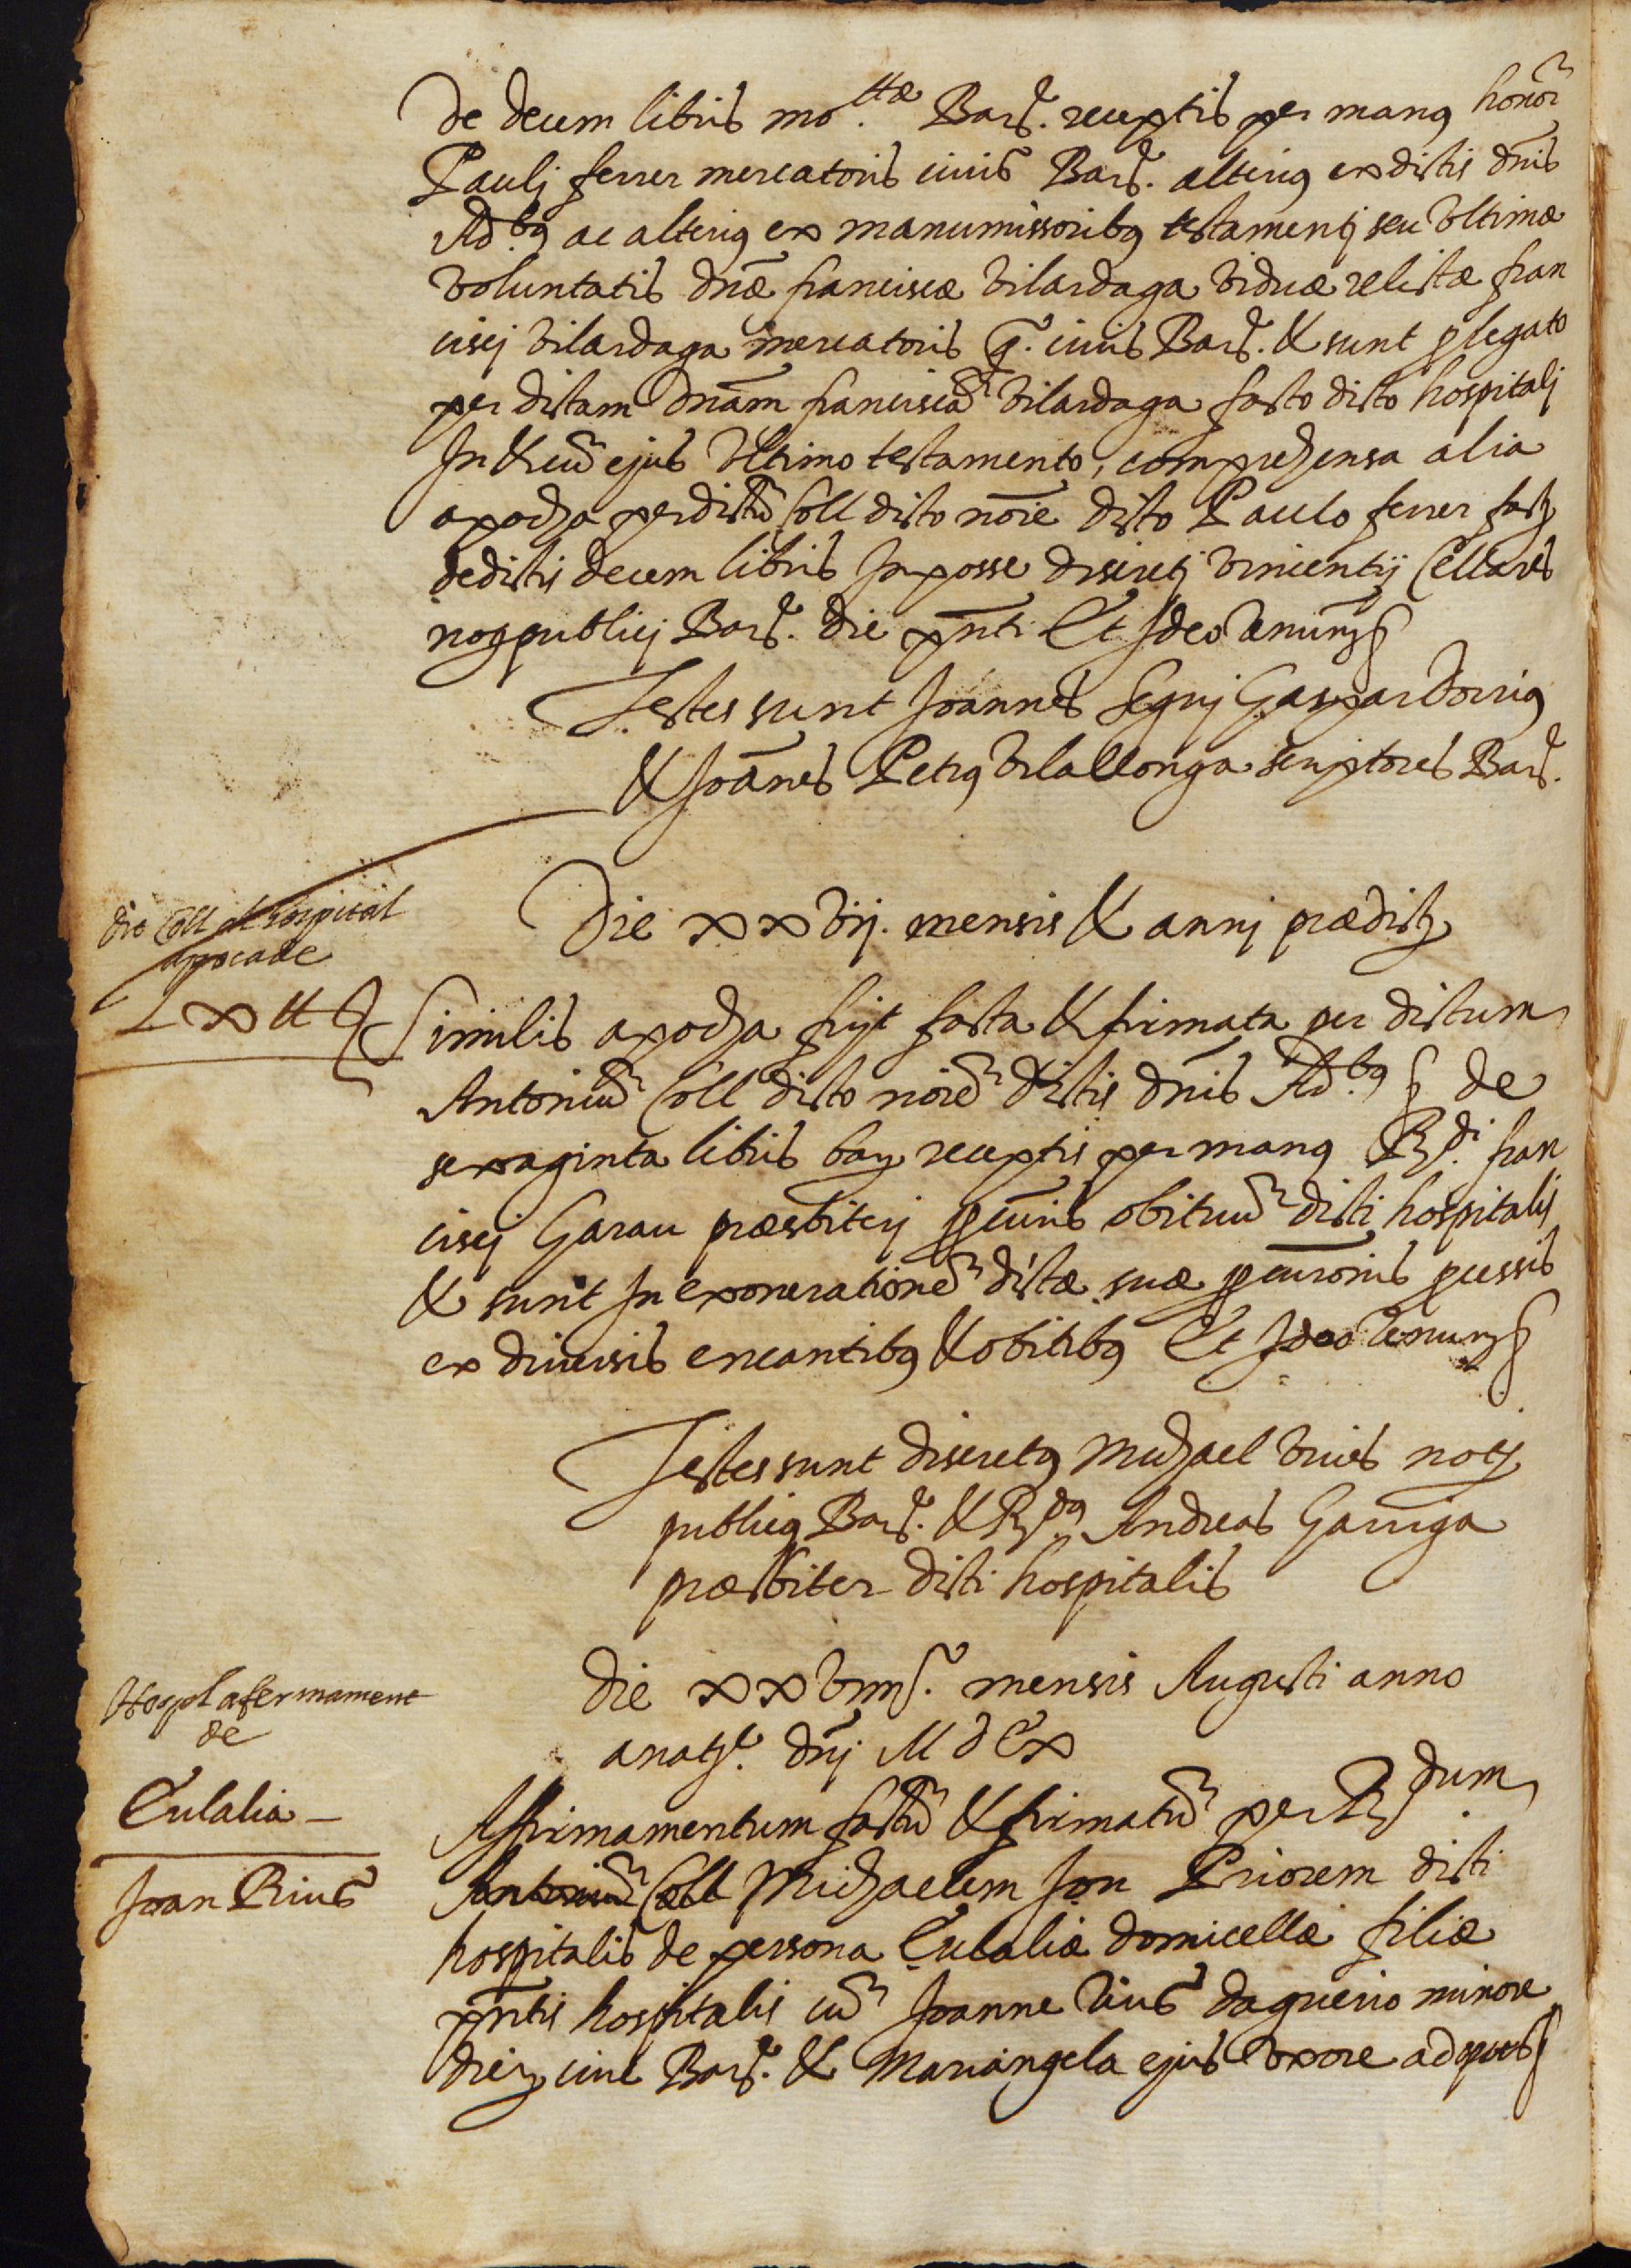 de decem libris mo.ttæ Barc. receptis per manus honor
Pauli ferrer mercatoris civis Barc. alterius ex dictis dnis
Ad.bus ac alterius ex manumissoribus testamenti seu ultimæ
voluntatis dnæ franciscæ vilardaga viduæ relictæ fran
cisci vilardaga mercatoris q. civis Barc. & sunt p legato
per dictam dnam franciscã vilardaga facto dicto hospitali
In & cũ ejus ultimo testamento, comprehensa alia
apocha per dictũ Coll dicto noĩe dicto Paulo ferrer facta
de dictis decem libris In posse discreti vincentij Cellares
nos publici Barc. die pnti Et Ideo renuns
Testes sunt Joannes Segui Gaspar dorrius
& Joānes Petrus vilallonga scriptores Barc.
die Coll al hospital
apoca de
L x tt
Die xxvij. mensis & anni prædict
Similis apocha fuit facta & firmata per dictum
Antoniũ Coll dicto noĩe dictis dnis Ad.bus de
sexaginta libris bar receptis per manus R.di fran
cisci Garau præsbiteri pcuris obituũ dicti hospitalis
& sunt In exonerationẽ dictæ suæ pcuronis pcessis
ex diversis encantibus & obitibus Et Ideo renuns
Testes sunt discretus Michael vives not
publicus Barc. & R.dus Andreas Garriga
præsbiter dicti hospitalis
Hospl afermament
de
Eulalia
Joan Rius
die xxviiij. mensis Augusti anno
a nat.e dni M d C x
Affirmamentum factũ & firmatũ per R.dum
Antoniũ Coll Michaelem Jon Priorem dicti
hospitalis de persona Eulaliæ domicellæ filiæ
pntis hospitalis cũ Joanne Rius daguerio minore
dier cive Barc. & Mariangela ejus uxore ad